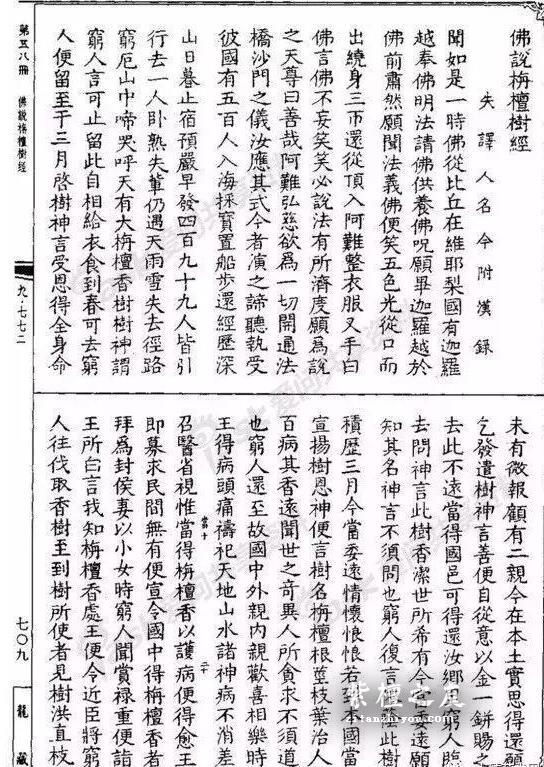 佛說栴檀樹經
失譯人名今附漢錄
聞如是一時佛從比丘在維耶梨國有迦羅
越奉佛明法請佛供養佛呪願畢迦羅越於
佛前肅然願聞法義佛便笑五色光從口而
出繞身三帀還從頂入阿難整衣服叉手白
佛言佛不妄笑笑必說法有所濟度願為說
之天尊曰善哉阿難弘慈欲為一切開通法
橋沙門之儀汝應其式今者演之諦聽執受
彼國有五百人入海採寶置船步還經歷深
山日暮止宿預嚴早發四百九十九人皆引
行去一人臥熟失輩仍遇天雨雪失去徑路
窮厄山中啼哭呼天有大栴檀香樹樹神謂
窮人言可止留此自相給衣食到春可去窮
人便留至于三月啓樹神言受恩得全身命
未有微報顧有二親今在本土實思得還願
乞發遣樹神言善便自從意以金一餅賜之
去此不遠當得國邑可得還汝鄉里窮人臨
去問神言此樹香潔世所希有今當委遠願
知其名神言不須問也窮人復言依蔭此樹
積歷三月今當委遠情懷悢悢若到本國當
宣揚樹恩神便言樹名栴檀根莖枝葉治人
百病其香遠聞世之奇異人所貪求不須道
也窮人還至故國中外親內親歡喜相樂時
王得病頭痛禱祀天地山水諸神病不消差
召醫省視惟當得栴檀香以護病便得愈王
即募求民間無有便宣令國中得栴檀香者
拜為封侯妻以小女時窮人聞賞祿重便詣
王所白言我知栴檀香處王便令近臣將窮
人往伐取香樹至到樹所使者見樹洪直枝
第五八冊 佛說栴檀樹經
九·七七二
七〇九
龍藏
紫檀之友